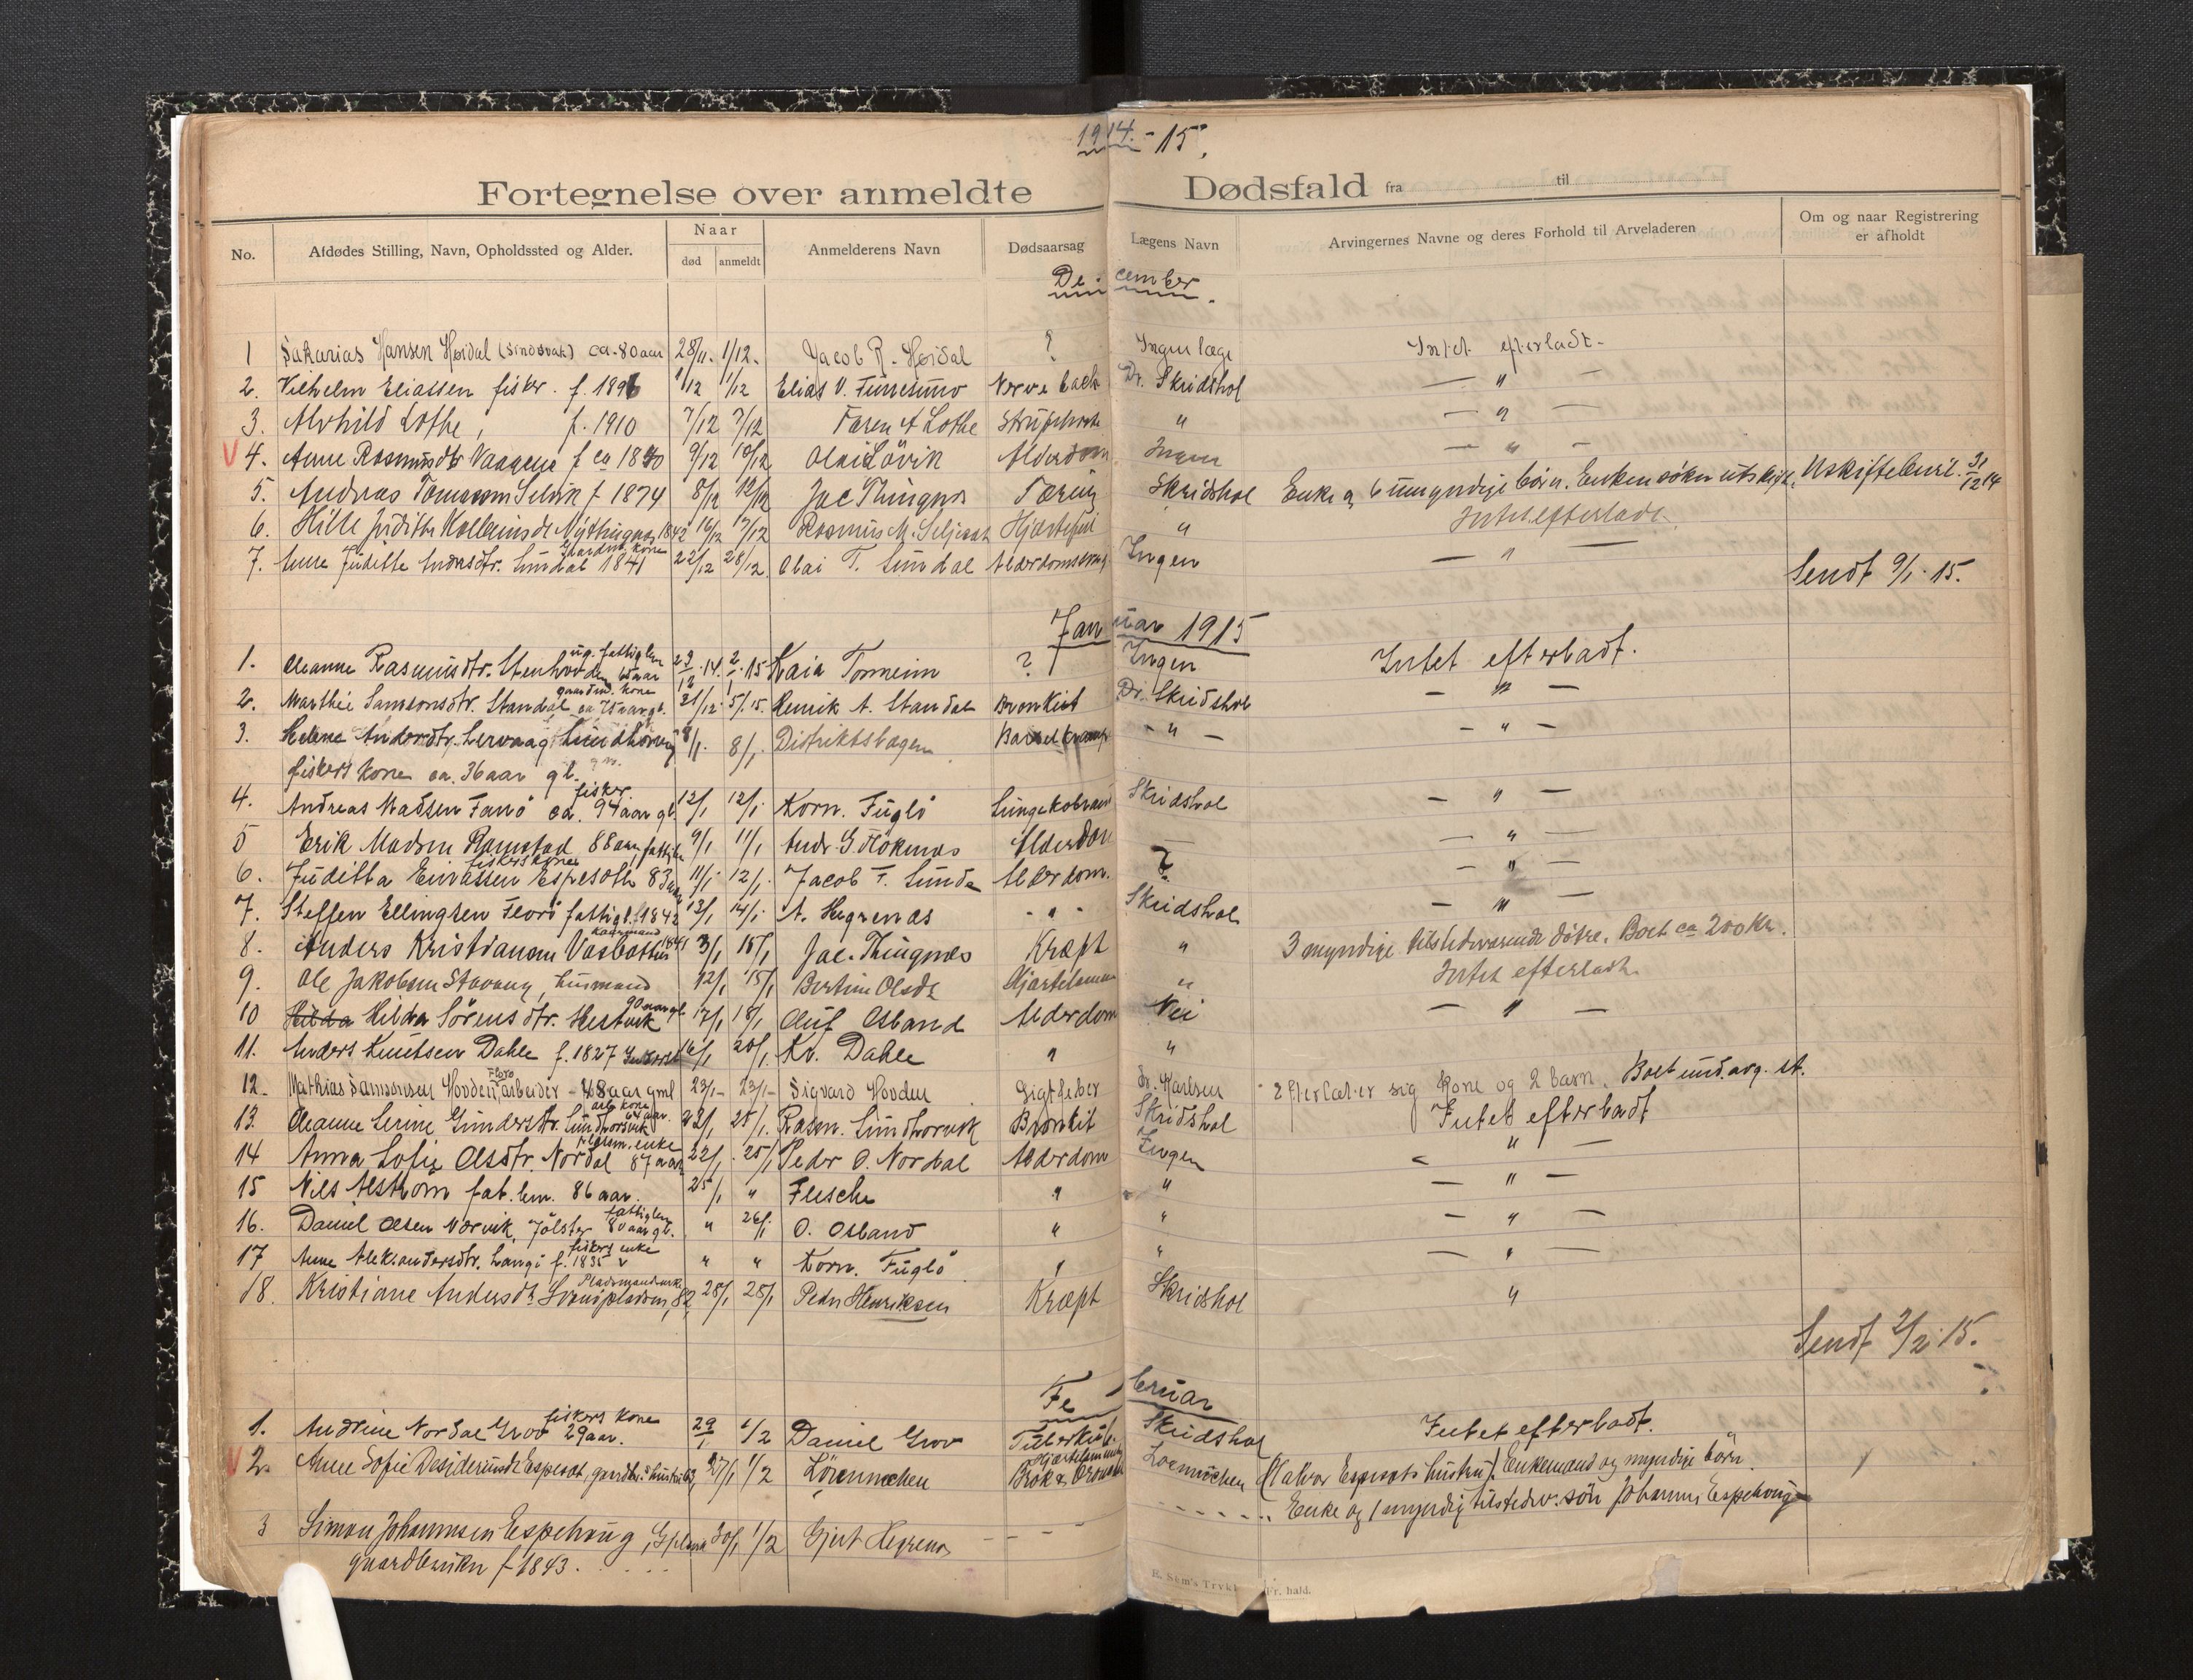 1914.-15.
Fortegnelse over anmeldte Dødsfald fra til
No. Afdødes Stilling, Navn, Opholdssted og Alder. Naar død anmeldt Anmelderens Navn Dødsaarsag Lægens Navn Arvingernes Navne og deres Forhold til Arveladeren Om og naar Registrering er afholdt
December.
1 Sakarias Hansen Høidal (Sindsvak) ca. 80 aar 28/11. 1/12. Jacob R. Høidal ? Ingen læge Intet efterladt.
2. Vilhelm Eliassen fisker. f. 1896 1/12 1/12 Elias V. Dr. Skridshol — " —
3. Alvhild Lothe, f. 1910 7/12 7/12 Lothe " — " —
V 4. Anne Rasmusdtr Vaagene f ca 1830 9/12 10/12 Olai Lövik Alderdom Ingen — " —
5. Andreas Selvik f 1874 8/12 12/12 Jac Thingnes Tæring Skridshol Enke og 6 umyndige börn. Enken söker utskift. Uskiftebevil. 31/12 14
6. Hille Juditte 1842 16/12 17/12 Rasmus M. Seljeset Hjertefeil " Intet efterladt.
7. Anne Juditte Andersdtr. Sundal gaardm. kone 1841 22/12 28/12 Olai T. Sundal Ingen — " —
Sendt 9/1-15.
Januar 1915
1. Oleanne Rasmusdtr. Stenhovden ug. fattiglem 65 aar 29/12-14. 2/1-15 Kaia Tonheim ? Ingen Intet efterladt.
2. Marthe Samsonsdtr. Standal gaardm. kone ca 75 aar gl. 21/12. 5/1.15. Henrik A. Standal Bronkit Dr. Skridshol — " —
3. Helene Andersdtr. Lervaag 8/1. 8/1. Distriktslægen - " - — " —
fiskers kone ca. 36 aar gl.
4. Andreas Madsen Fanö fisker ca. 94 aar gl. 12/1 12/1. Korn. Fuglö Skridshol — " —
5 Erik Madsen Ramstad 88 aar, fattiglem 9/1 11/1 Andr. G Alderdom — " —
6. Juditta Einarssen Espeseth fiskers kone 83 aar 11/1 12/1. Jacob T. Sunde Alderdom. ? — " —
7. Steffen Ellingsen Florö fattigl. f 1842 13/1 14/1. A. Hegrenæs - " - Skridshol — " —
8. Anders Kristianson Vasbotten kaarmand 1841 3/1 15/1 Jac. Thingnes Kræft " 3 myndige tilstedeværende døtre. Boet ca 200 Kr.
9. Ole Jakobsen Stavang, husmand 12/1 15/1 Bertine Olsdtr " Intet efterladt.
10 Hilda Sörensdtr. Hestvik 90 aar gl. 17/1 18/1 Oluf Osland Alderdom Nei — " —
11. Anders Knutsen Dahle f. 1827 16/1 20/1. Kr. Dahle " "
12. Mathias Samsonsen Hovden, Florø arbeider - 48 aar gml 23/1- 23/1- Sigvard Hovden Gigtfeber Dr. Karlsen Efterlater sig kone og 2 barn. Boet und. arg. st.
13. Oleanne Serine Gundersdtr. Sundhorsvik arb. kone 64 aar. 23/1 25/1. Rasm. Sundhorsvik Bronkit Skridshol Intet efterladt
14 Anna Sofie Olsdtr. Nordal enke 87 aar 22/1. 25/1 Peder O. Nordal Alderdom Ingen " —
15 Nils Alstrom fat. lem. 86 aar. 25/1 " Flesche " " — " —
16. Daniel Olsen Norvik, Jölster fattiglem 80 aar gl. " 26/1 O. Osland " " — " —
17 Anne Aleksandersdtr. Langö f. 1835 fiskers enke " " Korn. Fuglö " " — " —
18. Kristiane Andersdtr Pladsmandsenke 82. 28/1 28/1 Peder Henriksen Kræft Skridshol "
Sendt 2/2 15.
Februar
1. Andrine Nordal Grov fiskers kone 29 aar. 29/1 1/2 Daniel Grov Skridshol Intet efterladt.
V 2. Anne Sofie Espeset, gaardbr. hustru 63, 27/1 1/2 (Halvor Espesets hustru). Enkemand og myndige börn.
3 Simon Johannesen Espehaug, 30/1 1/2 Gjert Hegrenæs - - - Enke og 1 myndig tilstedev. sön Johannes Espehaug
gaardbruker f 1843.
E. Sem's Trykk Fr. hald.